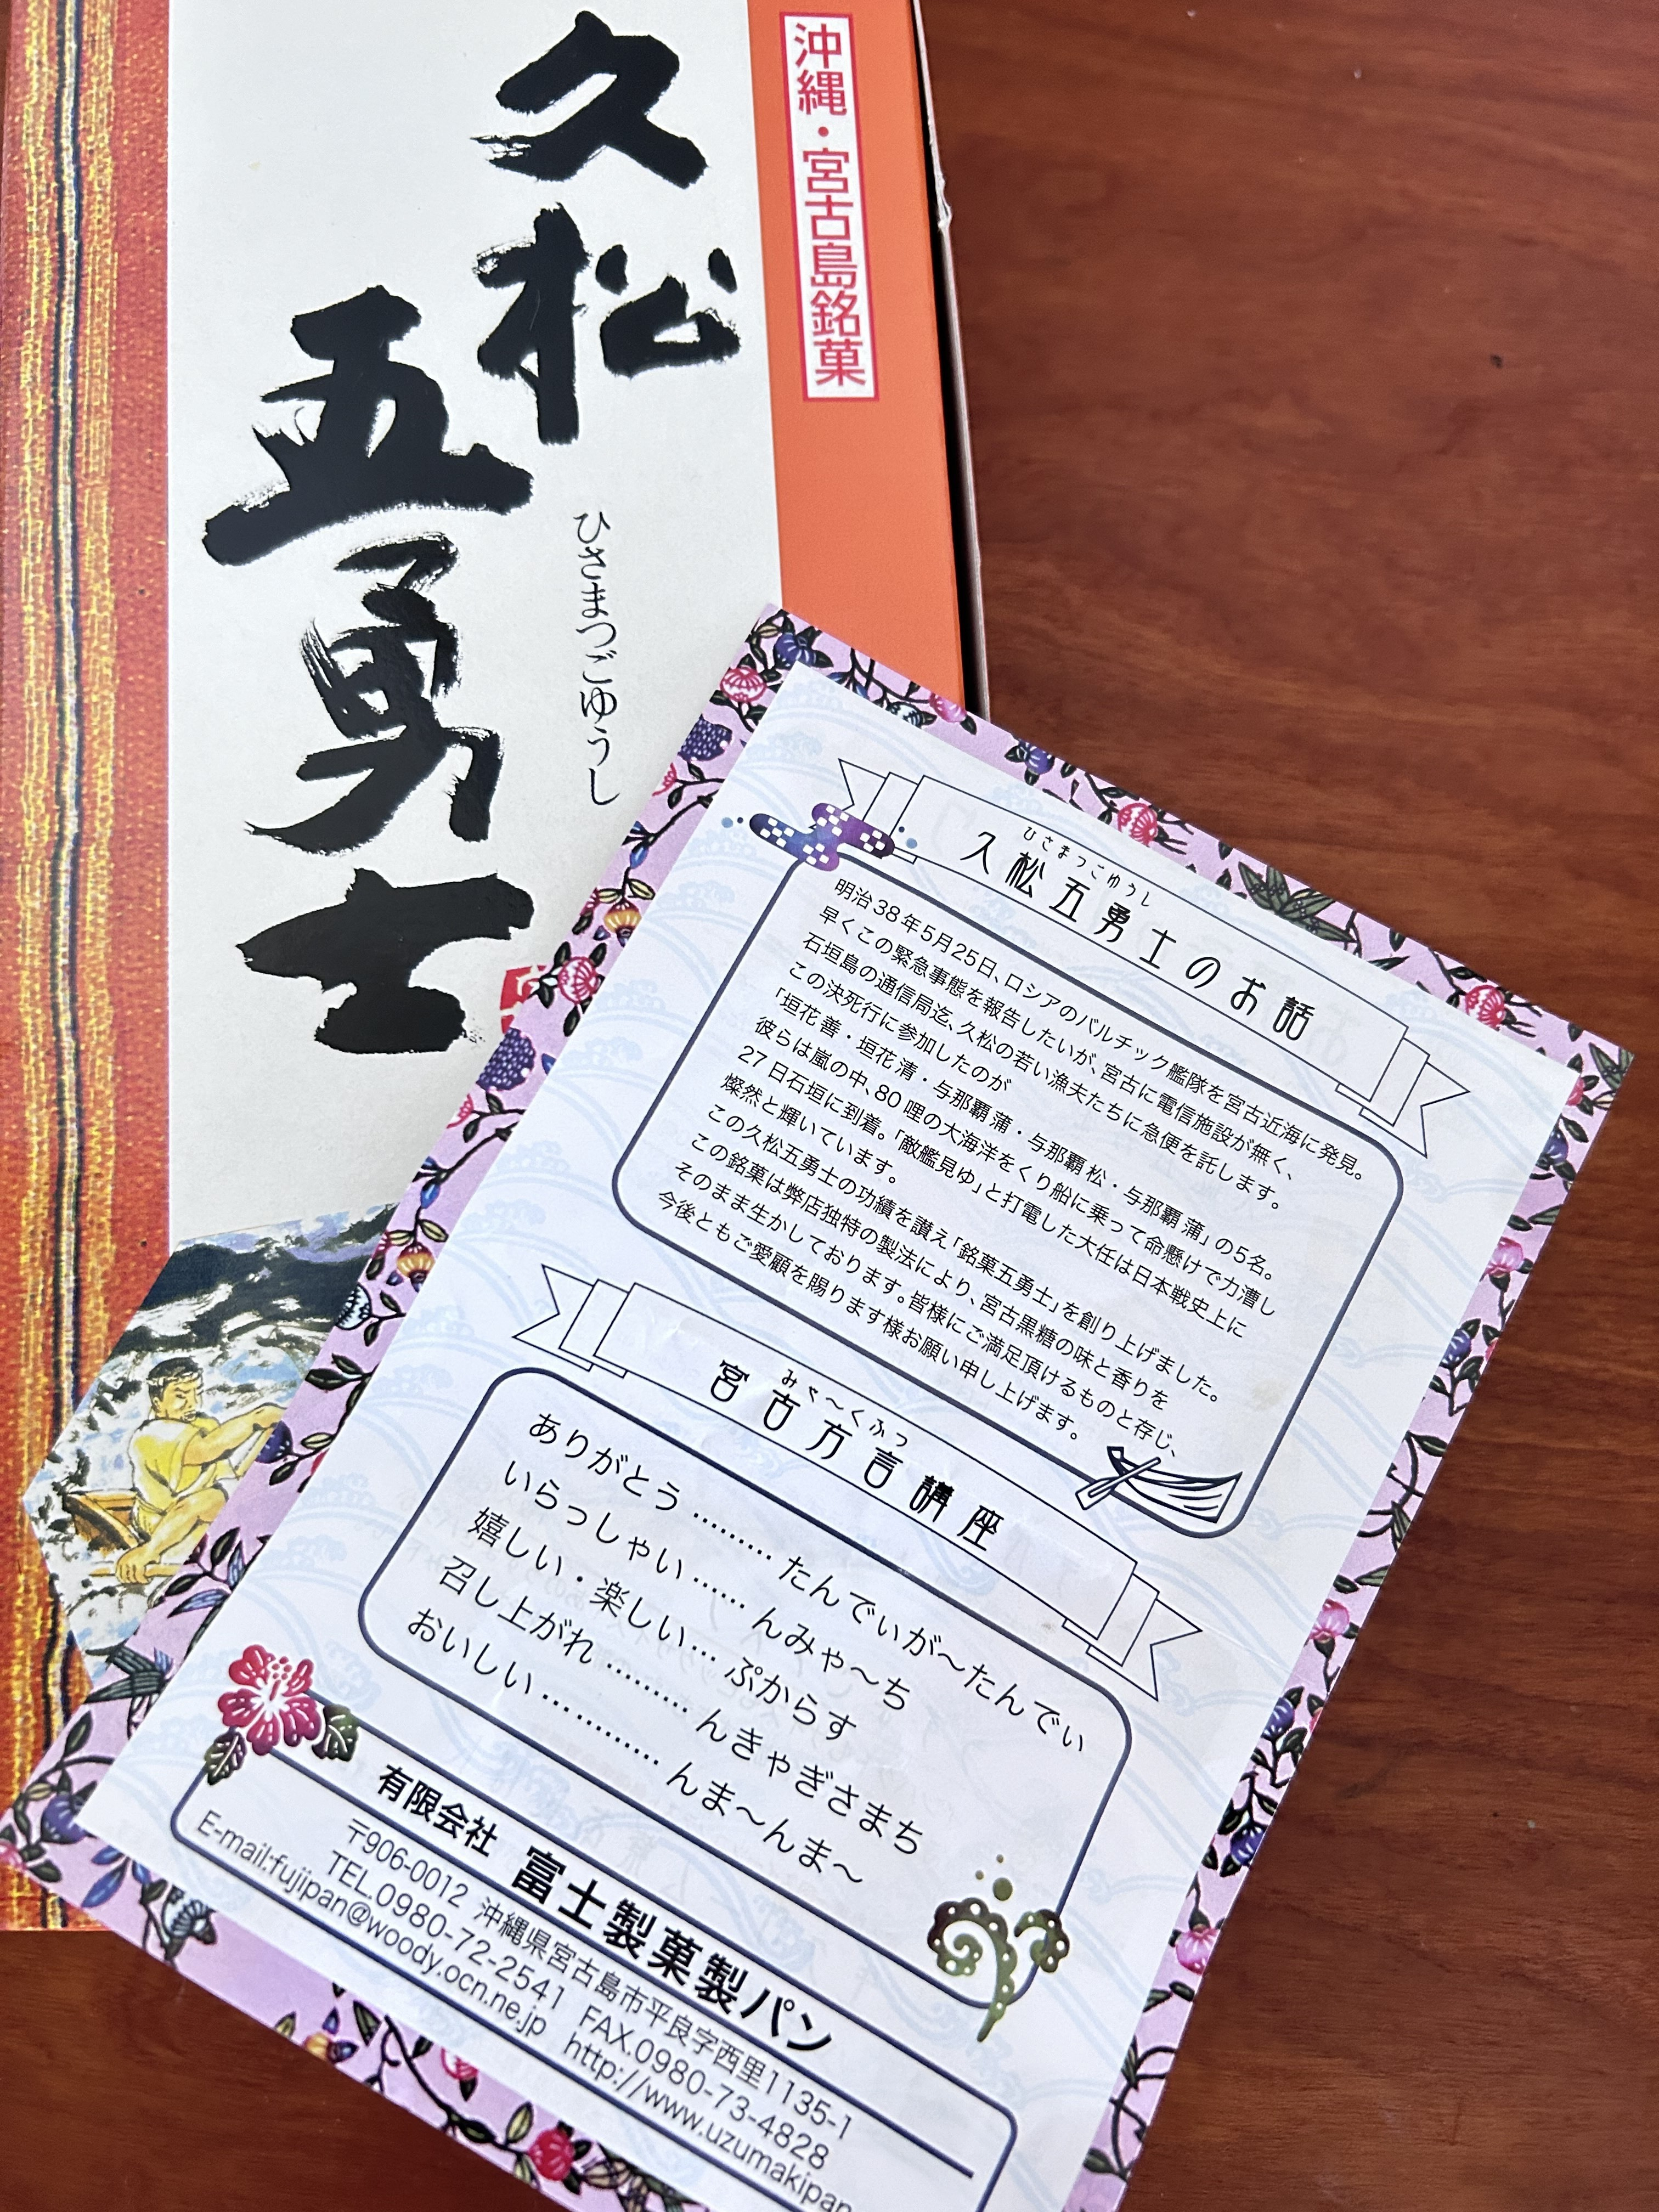 沖縄・宮古島銘菓
久松
五勇士
ひさまつごゆうし
ひさまつごゆうし
久松五勇士のお話
明治38年5月25日、ロシアのバルチック艦隊を宮古近海に発見。
早くこの緊急事態を報告したいが、宮古に電信施設が無く、
石垣島の通信局迄、久松の若い漁夫たちに急便を託します。
この決死行に参加したのが
「垣花 善・垣花 清・与那覇 蒲・与那覇 松・与那覇 蒲」の5名。
彼らは嵐の中、80 哩の大海洋をくり船に乗って命懸けで力漕し
27 日石垣に到着。「敵艦見ゆ」と打電した大任は日本戦史上に
燦然と輝いています。
この久松五勇士の功績を讃え「銘菓五勇士」を創り上げました。
この銘菓は弊店独特の製法により、宮古黒糖の味と香りを
そのまま生かしております。皆様にご満足頂けるものと存じ、
今後ともご愛顧を賜ります様お願い申し上げます。
みゃ〜くふつ
宮古方言講座
ありがとう ……… たんでぃが〜たんでぃ
いらっしゃい …… んみゃ〜ち
嬉しい・楽しい… ぷからす
召し上がれ ……… んきゃぎさまち
おいしい ………… んま〜んま〜
有限会社 富士製菓製パン
〒906-0012 沖縄県宮古島市平良字西里1135-1
TEL.0980-72-2541 FAX.0980-73-4828
E-mail:fujipan@woody.ocn.ne.jp http://www.uzumakipan